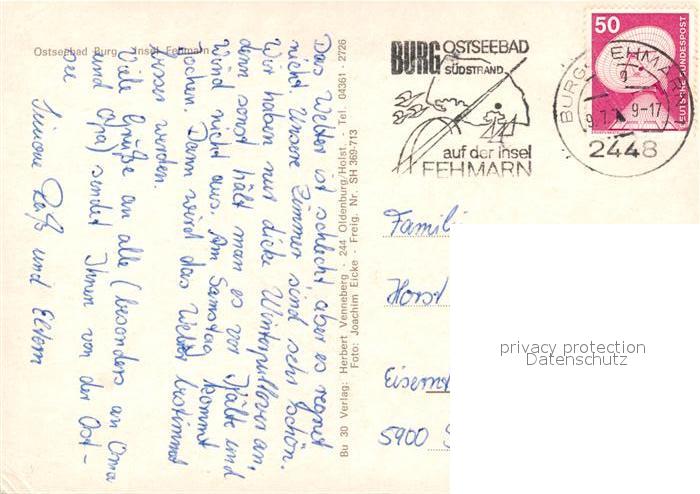 Ostseebad Burg Insel Fehmarn
Das Wetter ist schlecht aber es regnet
nicht. Unsere Zimmer sind sehr schön.
Wir haben nur dicke Winterpullover an,
denn sonst hält man es vor Kälte und
Wind nicht aus. Am Samstag kommt
Jochen. Dann wird das Wetter bestimmt
besser werden.
Viele Grüße an alle (besonders an Oma
und Opa) sendet Ihnen von der Ost-
see
Simone und Eltern
Bu 30 Verlag: Herbert Venneberg · 244 Oldenburg/Holst. · Tel. 04361 - 2726
Foto: Joachim Eicke · Freig. Nr. SH 369-713
BURG OSTSEEBAD
SÜDSTRAND
auf der insel
FEHMARN
BURG FEHMARN
9.7. 9-17
2448
50
DEUTSCHE BUNDESPOST
Famil
Horst
Eisern
5900 S
privacy protection
Datenschutz